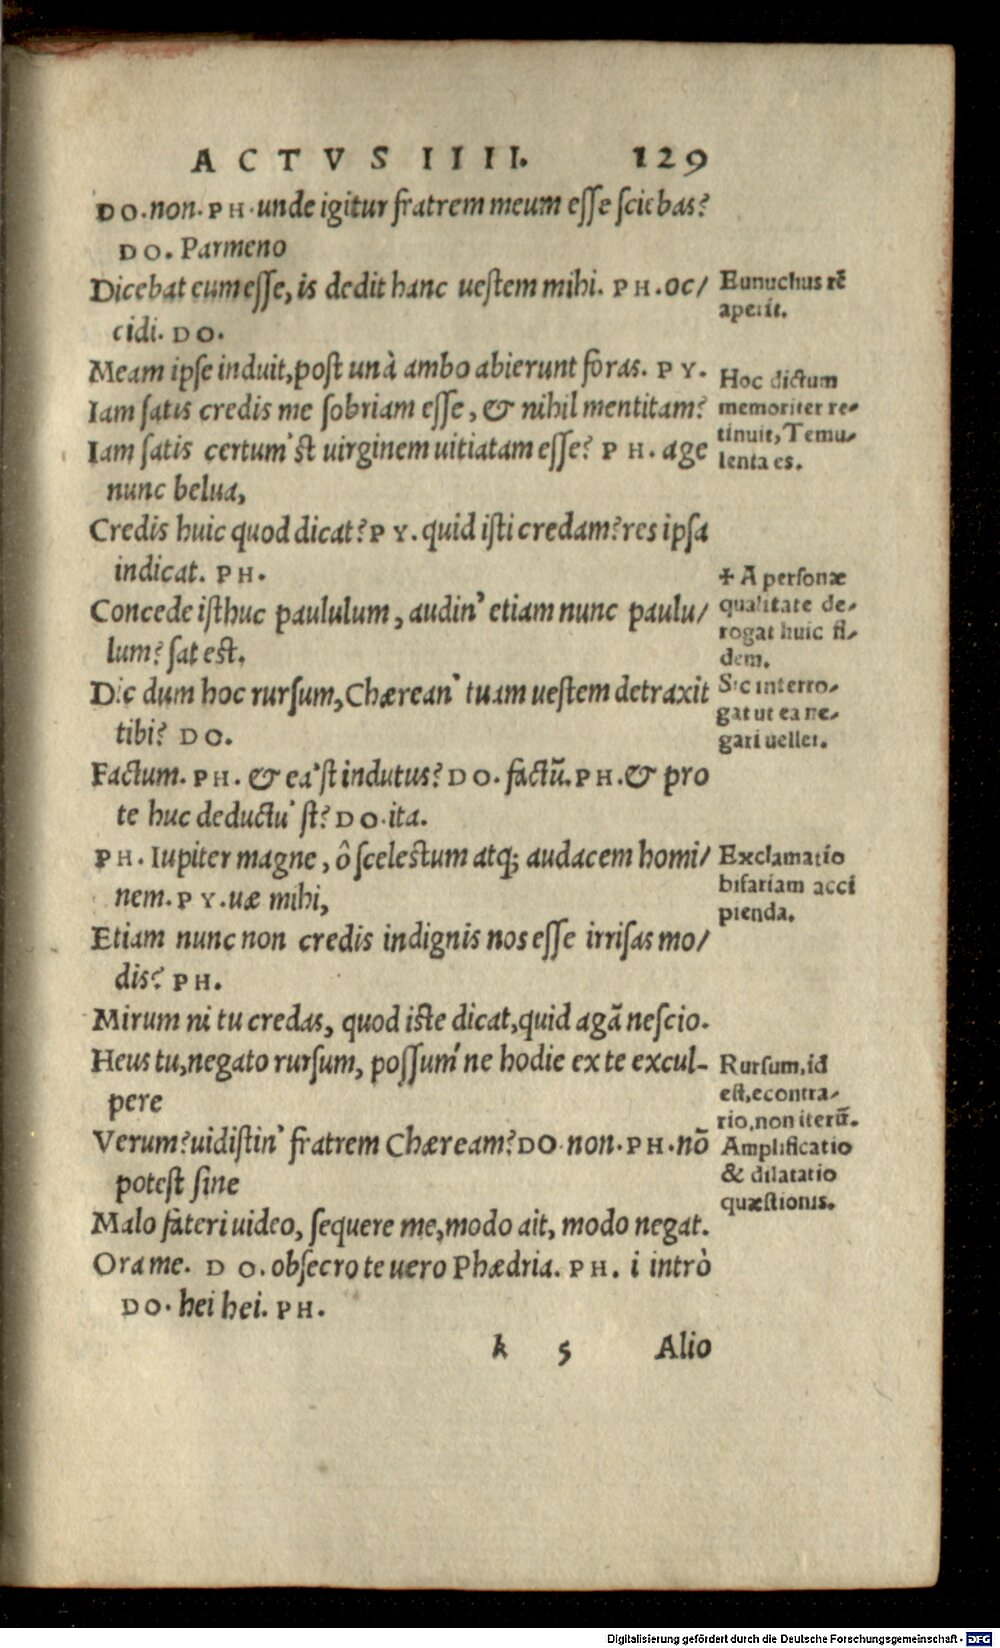 ACTVS IIII. 129
DO. non. PH. unde igitur fratrem meum esse sciebas?
DO. Parmeno
Dicebat eum esse, is dedit hanc uestem mihi. PH. oc/
cidi. DO.
Meam ipse induit, post unà ambo abierunt foras. PY.
Iam satis credis me sobriam esse, & nihil mentitam?
Iam satis certum'st uirginem uitiatam esse? PH. age
nunc belua,
Credis huic quod dicat? PY. quid isti credam? res ipsa
indicat. PH.
Concede isthuc paululum, audin' etiam nunc paulu/
lum? sat est.
Dic dum hoc rursum, Chærean' tuam uestem detraxit
tibi? DO.
Factum. PH. & ea'st indutus? DO. factū. PH. & pro
te huc deductu'st? DO. ita.
PH. Iupiter magne, ô scelestum atq; audacem homi/
nem. PY. uæ mihi,
Etiam nunc non credis indignis nos esse irrisas mo/
dis? PH.
Mirum ni tu credas, quod iste dicat, quid agā nescio.
Heus tu, negato rursum, possum'ne hodie ex te excul-
pere
Verum? uidistin' fratrem Chæream? DO. non. PH. nō
potest sine
Malo fateri uideo, sequere me, modo ait, modo negat.
Ora me. DO. obsecro te uero Phædria. PH. i intrò
DO. hei hei. PH.
k 5 Alio
Eunuchus rē
aperit.
Hoc dictum
memoriter re-
tinuit, Temu-
lenta es.
✢ A personæ
qualitate de-
rogat huic fi-
dem.
Sic interro-
gat ut ea ne-
gari uellet.
Exclamatio
bifariam acci
pienda.
Rursum, id
est, econtra-
rio, non iterū.
Amplificatio
& dilatatio
quæstionis.
Digitalisierung gefördert durch die Deutsche Forschungsgemeinschaft - DFG